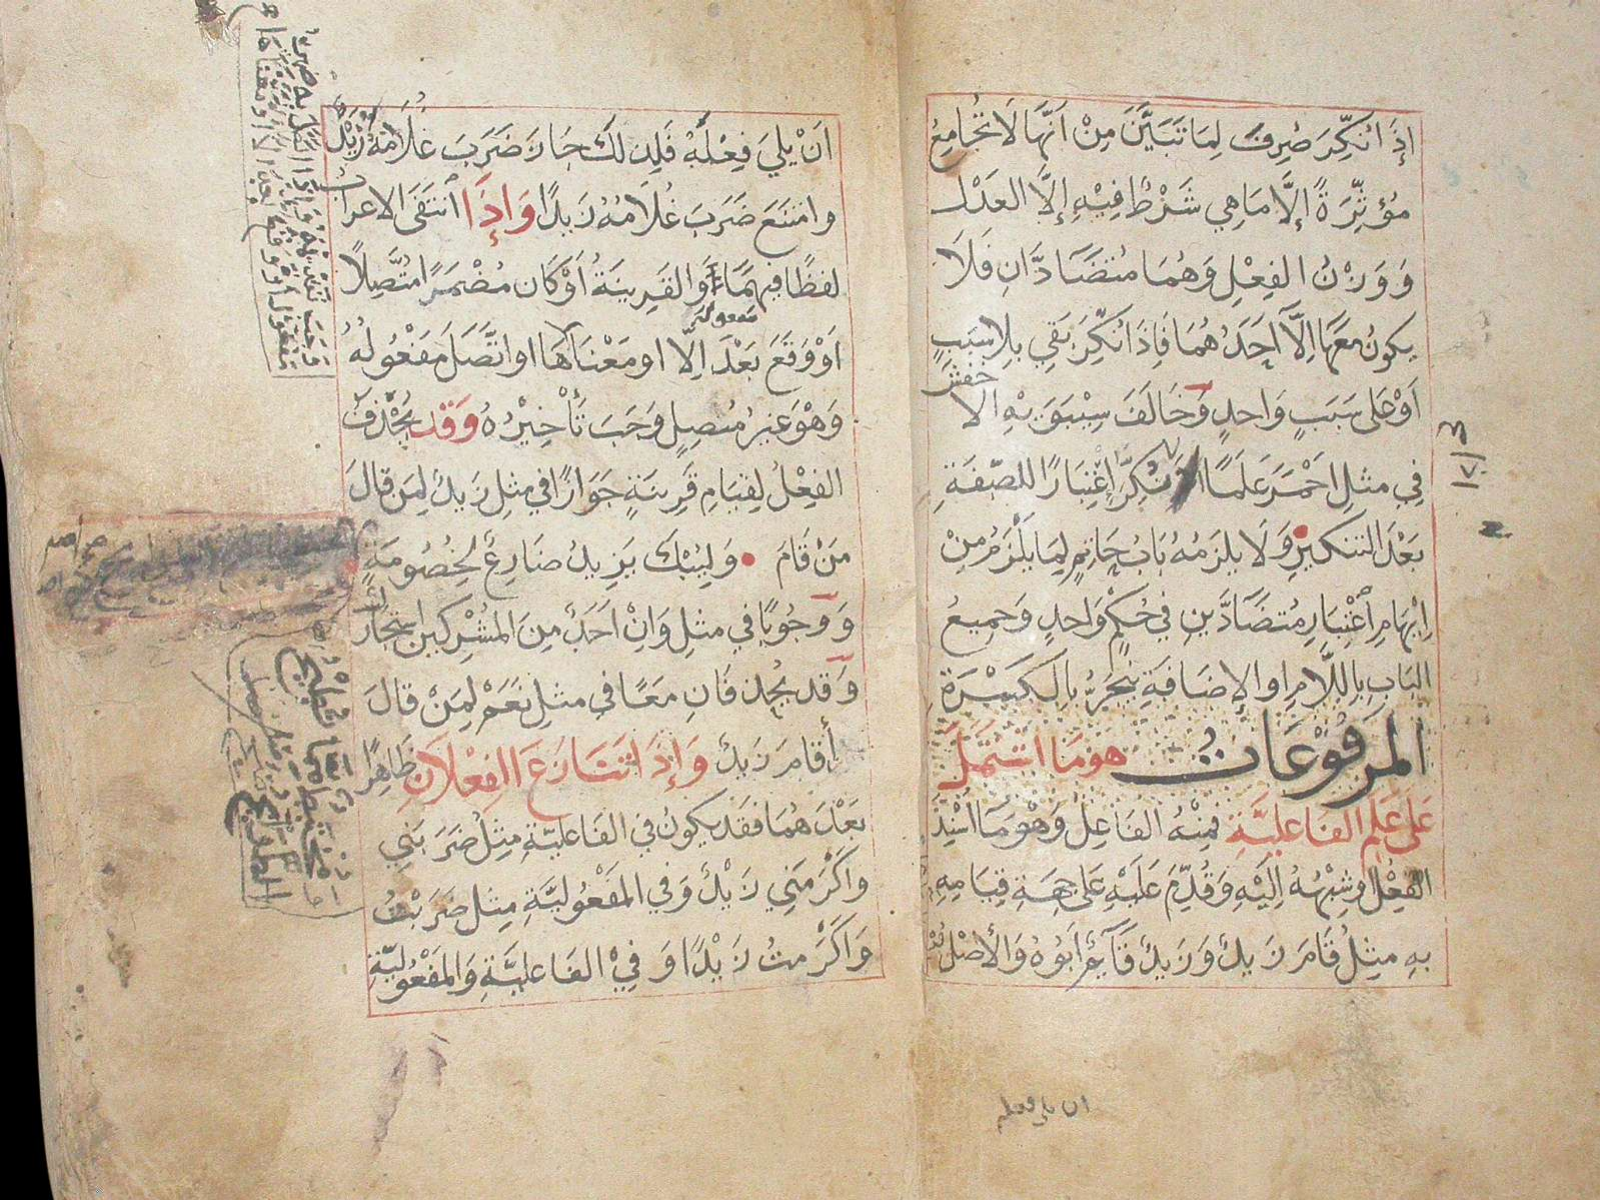 إذَا نُكِّرَ صُرِفَ لِمَا تَبَيَّنَ مِنْ اَنَّهَا لَا تُجَامِعُ
مُؤَثِّرَةً إلَّا مَا هِي شَرْطٌ فِيْهِ إلَّا العَدْلَ
وَوَزْنُ الفِعْلِ وَهُمَا مُتَضَادَّانِ فَلَا
يكونُ معَهَا اِلَّا اَحَدُهُمَا فَاِذَا نُكِّرَ بَقِي بِلَا سَبَبٍ
اَوْ عَلى سَبَبٍ وَاحدٍ وَخَالَفَ سِيْبَوَيْهِ الاخفش
فِي مثلِ احْمَرَ عَلَمًا اذَا نُكِّرَ اِعْتِبَارًا للصّفَةِ
بَعْدَ التنكيرِ وَلَا يلزَمُهُ بَابُ حَاتِمٍ لِمَا يَلْزَمُ مِنْ
اِيْهَامِ اعْتِبَارِ مُتضَادَّينِ فِي حُكْمٍ وَاحدٍ وَجميعُ
البَابِ بِاللّامِ اوالإضَافَةِ يَنْجَرُّ بِالكَسْرَةِ
المرفُوْعَات هومَا اشتَمَلَ
عَلى عَلَمِ الفَاعليَّةِ فمِنْهُ الفَاعِلُ وَهْوَ مَا اُسْنِدَ
الفِعْلُ اوشِبْهُهُ اِلَيْهِ وَقُدِّمَ عَلَيْهِ عَلى جِهَةِ قِيَامِهِ
بهِ مثِلُ قَامَ زَيدٌ وَزَيدٌ قَائِمٌ اَبُوْهُ وَالأَصْلُ
ان يلي فعله
اَنْ يَلِيَ فِعْلَهُ فَلِذلكَ جَازَ ضَرَبَ غُلَامَهُ زَيْدٌ
وامْتَنَعَ ضَرَبَ غُلَامُهُ زَيدًا وَإذَا انْتَفَى الاعرَابُ
لفظًا فيهِمَا وَالقَرِينَةُ اَوْكَان مُضْمَرًا مُتَّصِلًا
مفعوله
اَوْ وَقَعَ بَعْدَ اِلّا اومَعْنَاهَا اواتَّصَلَ مَفْعُولُهُ
وَهْوَ غَيرُ مُتصِلٍ وَجَبَ تَأْخِيْرُهُ وَقَد يُحْذَفُ
الفِعْلُ لِقيَامِ قَرِينَةٍ جَوَازًا في مثلِ زَيدٌ لِمَن قَالَ
مَنْ قَامَ وَلِيُبْكَ يَزِيدُ ضَارِعٌ لِخُصُومَةٍ
وَوُجُوبًا في مثلِ وَاِنْ اَحَدٌ مِنَ المُشْرِكينَ استجارك
وَقَد يُحْذفَانِ مَعًا في مثلِ نَعَمْ لِمَنْ قَالَ
أقَامَ زَيدٌ وَإذَا تَنَازَعَ الفِعْلَانِ ظَاهِرًا
بَعْدَهُمَا فَقَد يَكونُ في الفَاعليّةِ مِثلُ ضَرَبَنِي
وَاَكْرَمَنِي زَيْدٌ وَفي المَفْعُوليَّةِ مِثل ضَرَبْتُ
وَاَكْرَمتُ زَيْدًا وَفِيْ الفَاعليَّةِ وَالمَفْعُوليّةِ